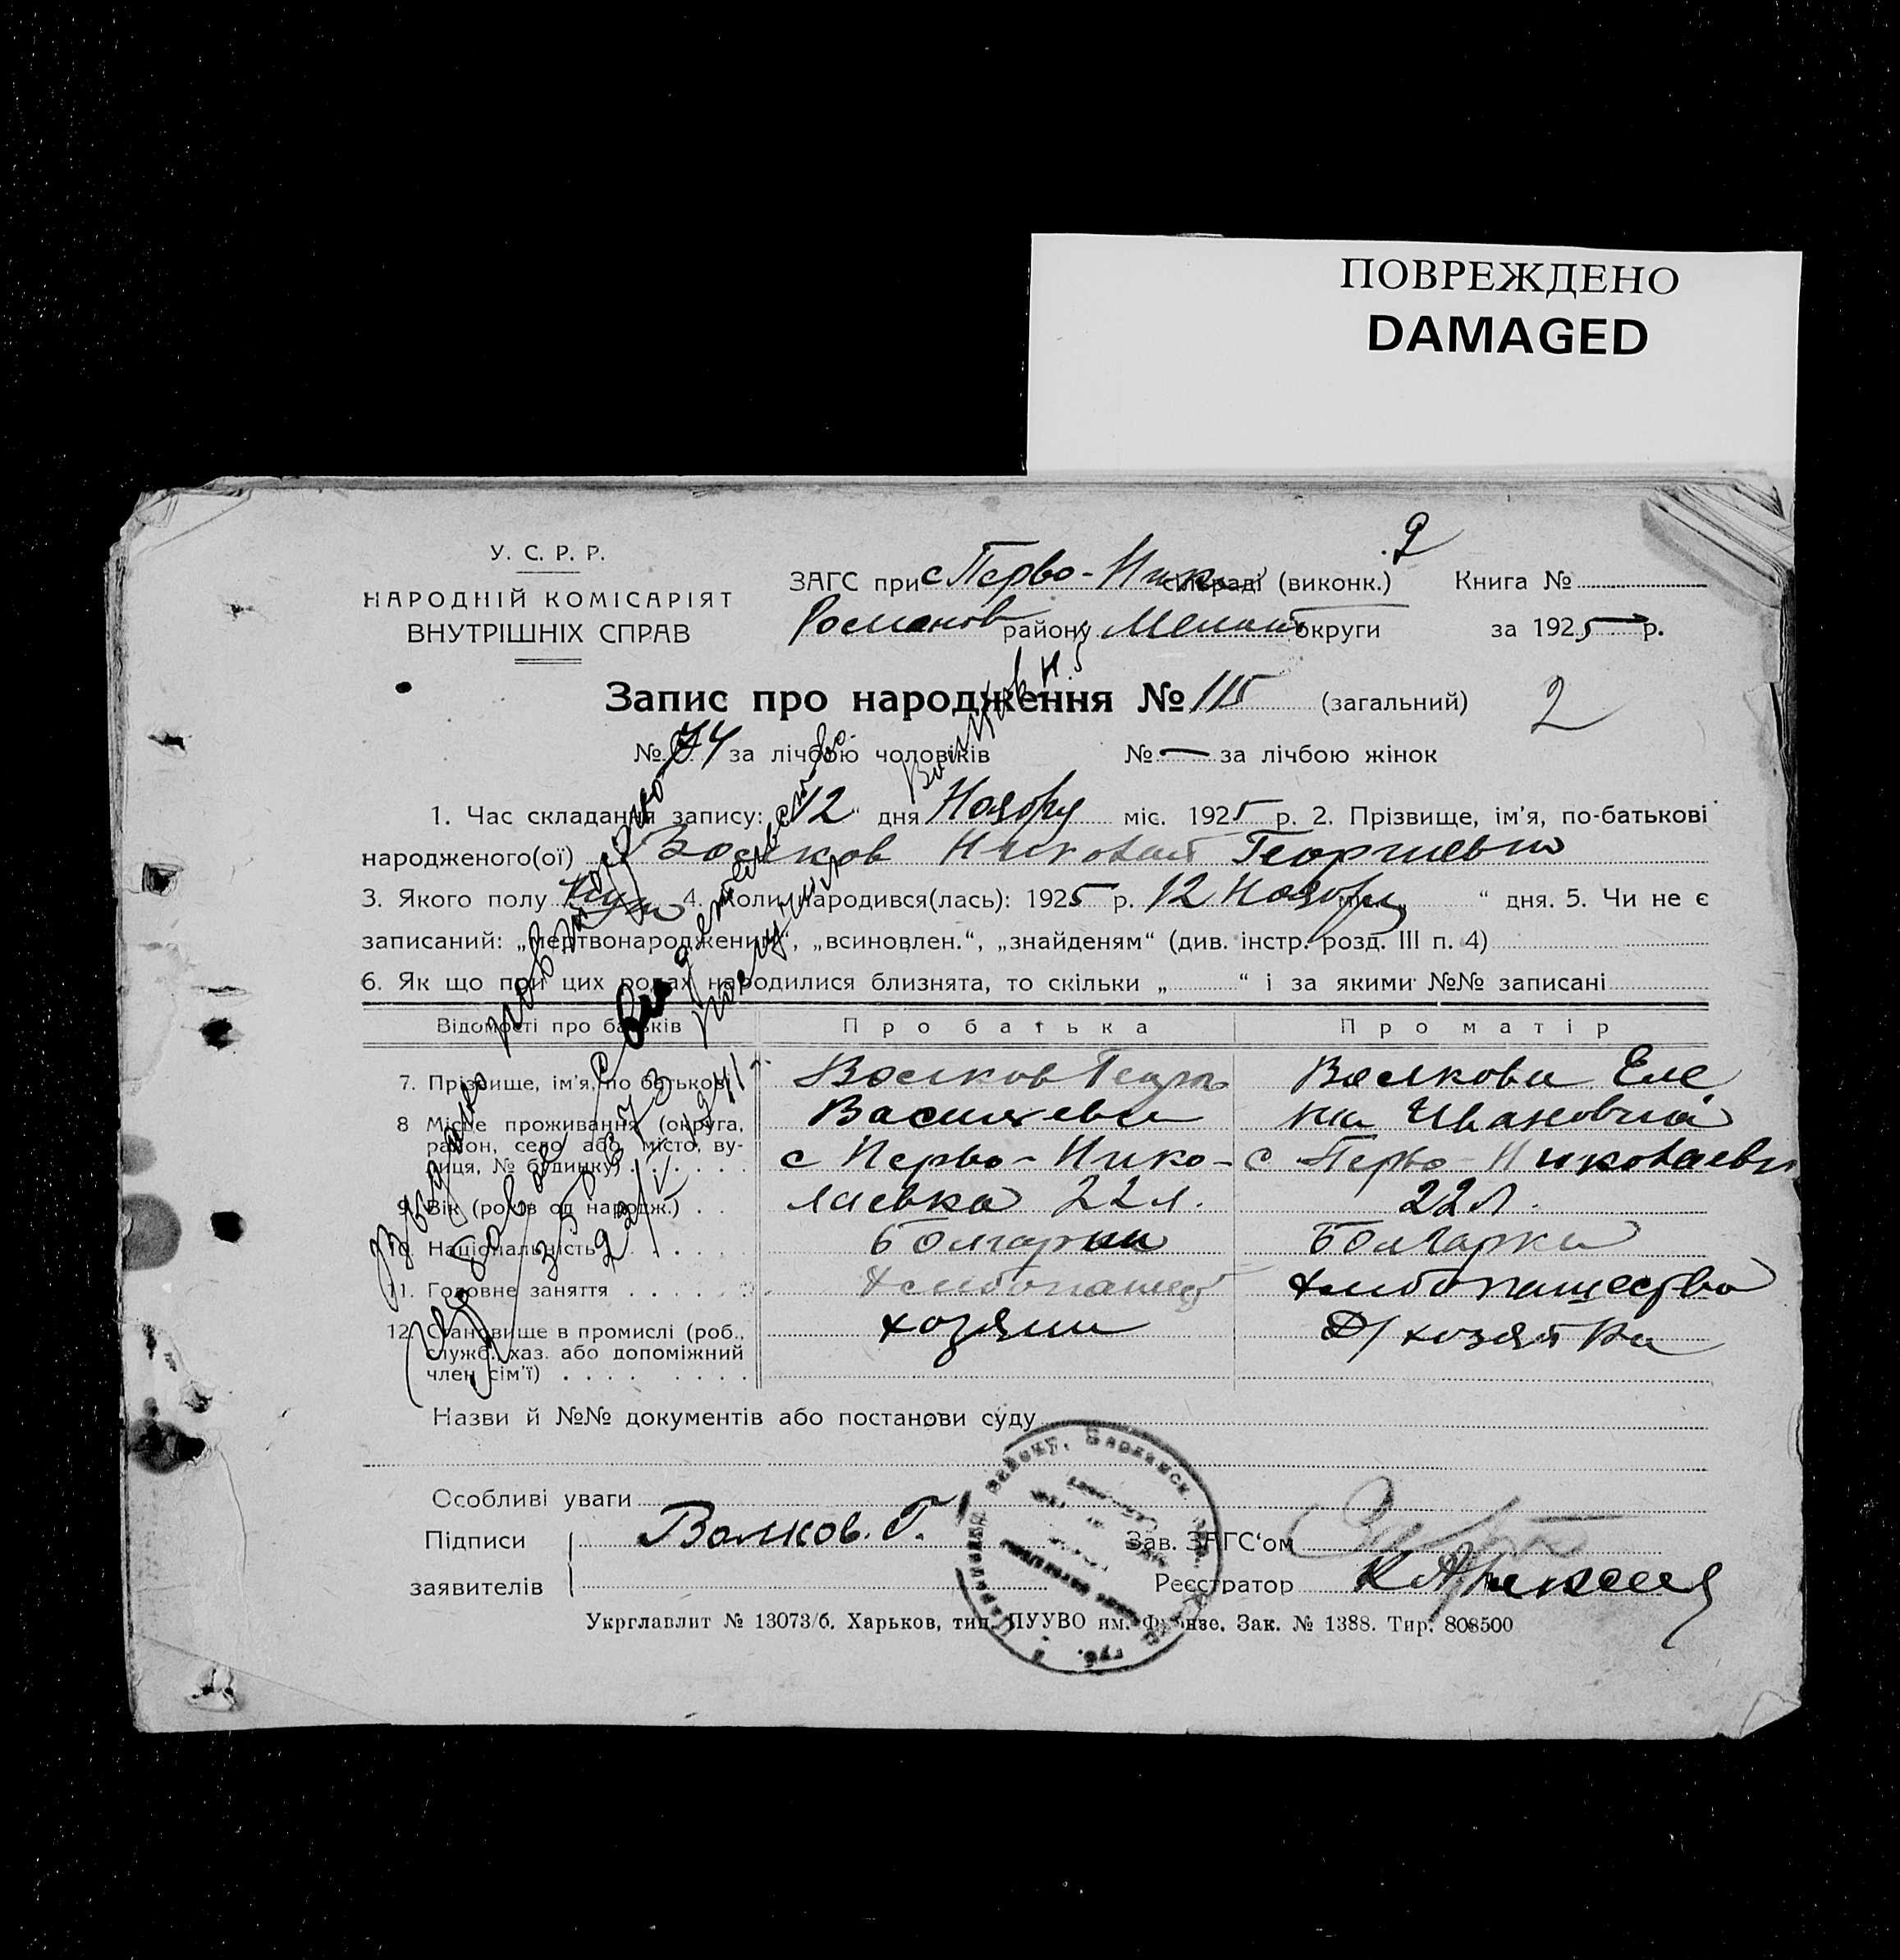 ПОВРЕЖДЕНО
DAMAGED
2
У. С. Р. Р.
НАРОДНІЙ КОМІСАРІЯТ
ВНУТРІШНІХ СПРАВ
ЗАГС при с Перво-Ник сільраді (виконк.) Книга №
Романов району Мелит округи за 1925 р.
Запис про народження № 115 (загальний) 2
№ 74 за лічбою чоловіків № — за лічбою жінок
1. Час складання запису: „12“ дня Ноября міс. 1925 р. 2. Прізвище, ім'я, по-батькові
народженого(ої) Волков Николай Георгиевич
3. Якого полу Муж 4. Коли народився(лась): 1925 р. 12 Ноября міс. „ “ дня. 5. Чи не є
записаний: „мертвонароджений“, „всиновлен.“, „знайденям“ (див. інстр. розд. III п. 4)
6. Як що при цих родах народилися близнята, то скільки „ “ і за якими №№ записані
Відомості про батьків Про батька Про матір
7. Прізвище, ім'я, по батькові Волков Георг Волкова Еле
Васильевич на Ивановна
8 Місце проживання (округа, район, село або місто, вулиця, № будинку) с Перво-Нико- с Перво-Николаевка
9. Вік (років од народж.) лаевка 22 л. 22 л.
10. Національність Болгарин Болгарка
11. Головне заняття Хлибопашес Хлибопашество
12. Становище в промислі (роб., служб., хаз. або допоміжний член сім'ї) хозяин Д/хозяйка
Выдано повторное
свидетельство
35673
Получил Волков Н.
22/V 1941 г.
Назви й №№ документів або постанови суду
Особливі уваги
Підписи заявителів Волков. Г.
Зав. ЗАГС'ом
Реєстратор
Укрглавлит № 13073/б. Харьков, тип. ПУУВО им. Фрунзе. Зак. № 1388. Тир. 808500